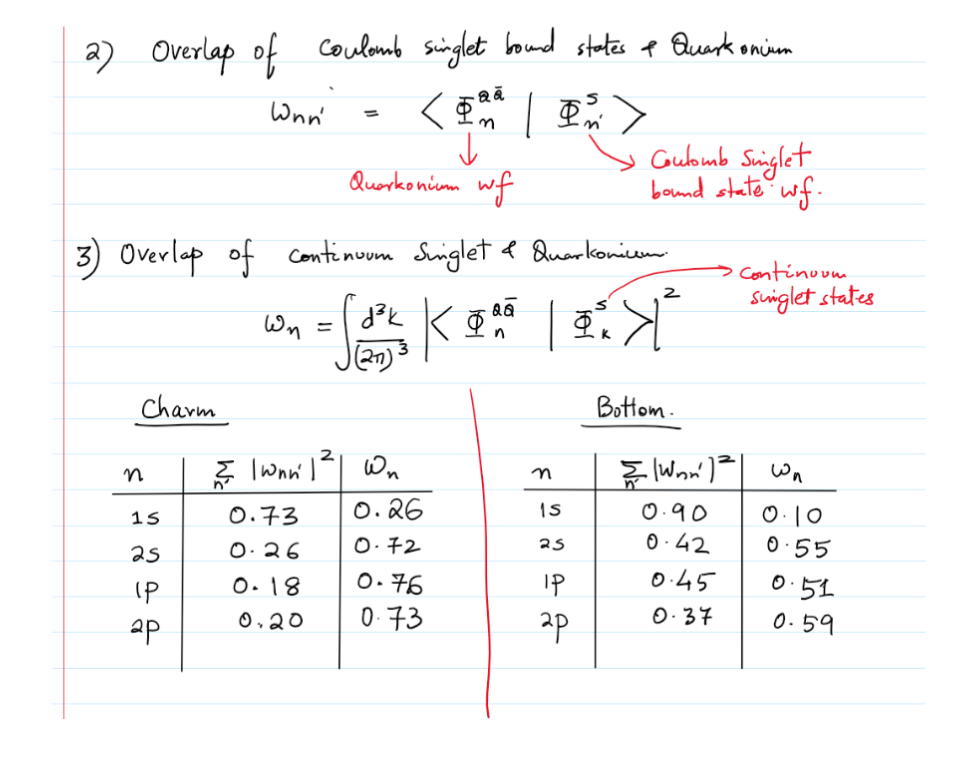 2) Overlap of Coulomb singlet bound states & Quarkonium
ωnn' = < Φ_n^{QQ̄} | Φ_{n'}^{s} >
Quarkonium wf
Coulomb Singlet
bound state wf.
3) Overlap of continuum Singlet & Quarkonium.
continuum
singlet states
ωn = ∫ d³k/(2π)³ |< Φ_n^{QQ̄} | Φ_k^{s} >|²
Charm
n Σ_{n'} |ωnn'|² ωn
1s 0.73 0.26
2s 0.26 0.72
1p 0.18 0.76
2p 0.20 0.73
Bottom.
n Σ_{n'} |ωnn'|² ωn
1s 0.90 0.10
2s 0.42 0.55
1p 0.45 0.51
2p 0.37 0.59